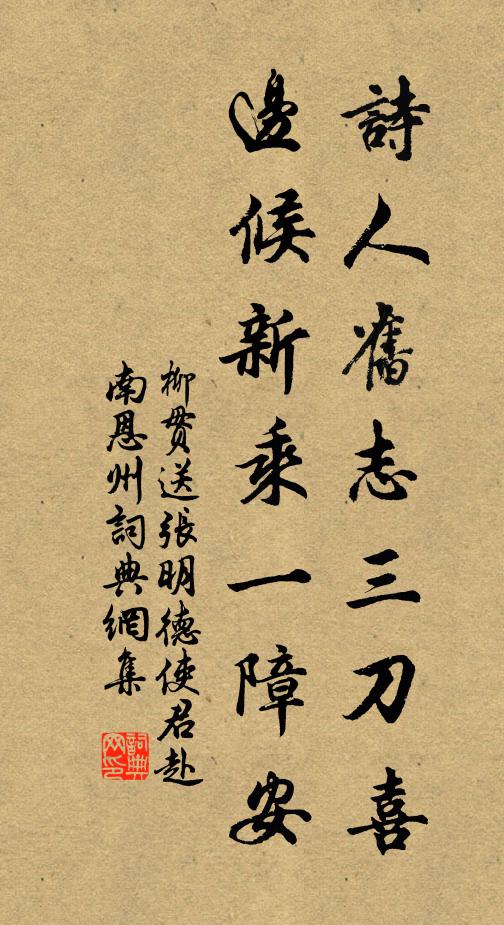 詩人舊志三刀喜
邊候新乘一障安
柳貫送張明德使君赴
南恩州詞典網集
詞典
网印